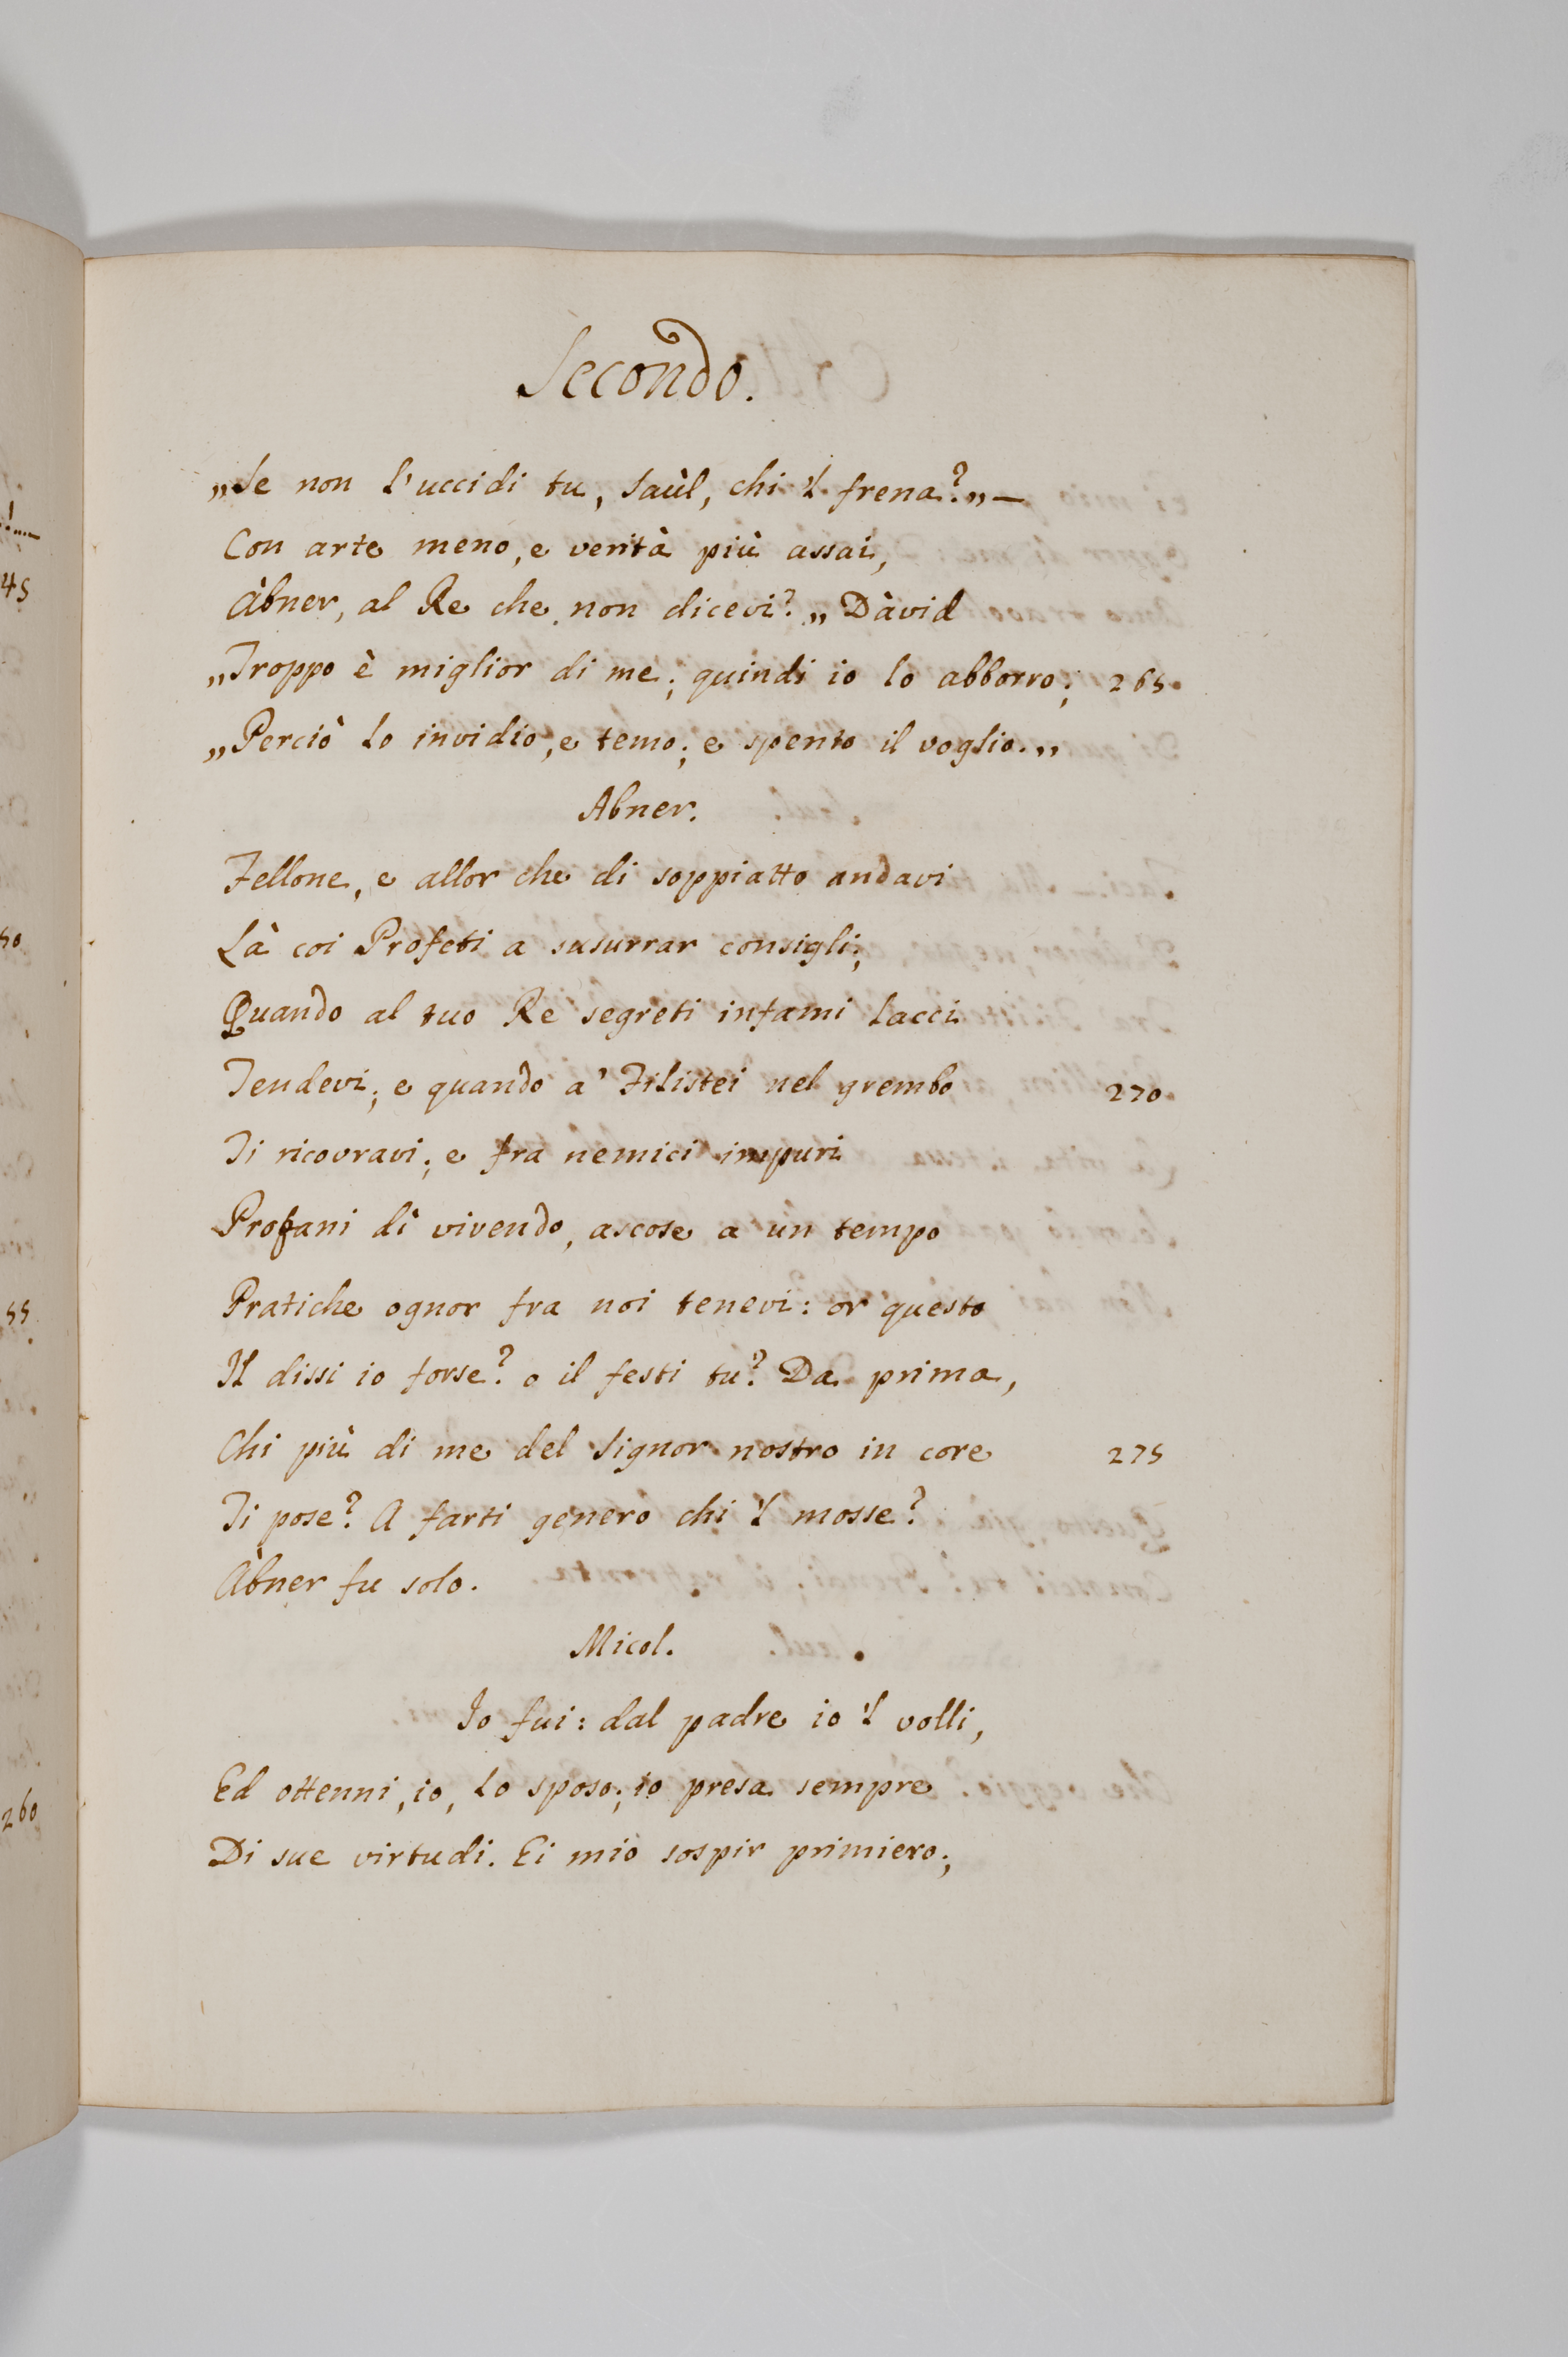 Secondo.
„Se non l'uccidi tu, Saùl, chi 'l frena?„—
Con arte meno, e verità più assai,
Àbner, al Re che non dicevi? „Dàvid
„Troppo è miglior di me; quindi io lo abborro; 265.
„Perciò lo invidio, e temo; e spento il voglio.„
Abner.
Fellone, e allor che di soppiatto andavi
Là coi Profeti a susurrar consigli;
Quando al tuo Re segreti infami lacci
Tendevi; e quando a' Filistei nel grembo 270
Ti ricovravi; e fra nemici impuri
Profani dì vivendo, ascose a un tempo
Pratiche ognor fra noi tenevi: or questo
Il dissi io forse? o il festi tu? Da prima,
Chi più di me del Signor nostro in core 275
Ti pose? A farti genero chi 'l mosse?
Àbner fu solo.
Micol.
Io fui: dal padre io 'l volli,
Ed ottenni, io, lo sposo; io presa sempre
Di sue virtudi. Ei mio sospir primiero;
45
50
55
260